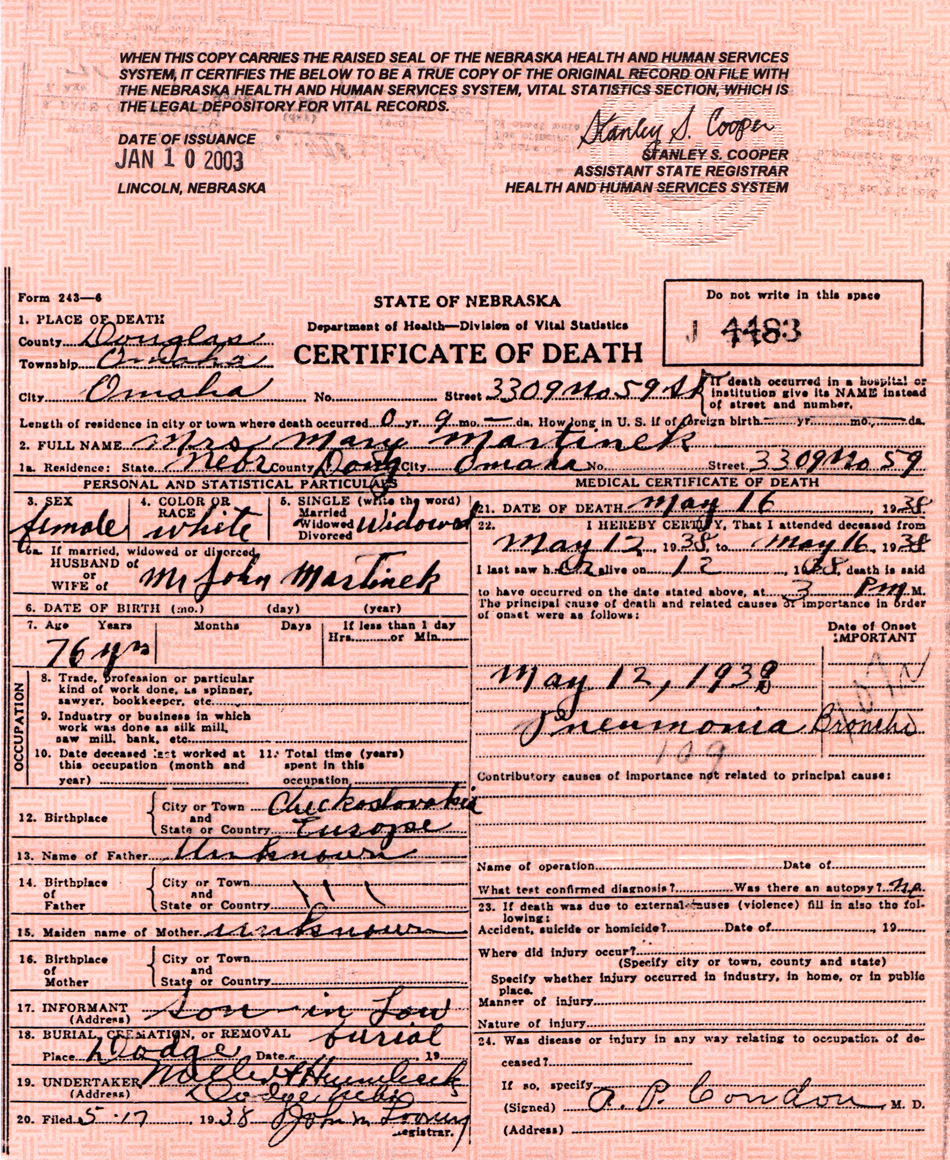 WHEN THIS COPY CARRIES THE RAISED SEAL OF THE NEBRASKA HEALTH AND HUMAN SERVICES
SYSTEM, IT CERTIFIES THE BELOW TO BE A TRUE COPY OF THE ORIGINAL RECORD ON FILE WITH
THE NEBRASKA HEALTH AND HUMAN SERVICES SYSTEM, VITAL STATISTICS SECTION, WHICH IS
THE LEGAL DEPOSITORY FOR VITAL RECORDS.
DATE OF ISSUANCE
JAN 10 2003
LINCOLN, NEBRASKA
Stanley S. Cooper
STANLEY S. COOPER
ASSISTANT STATE REGISTRAR
HEALTH AND HUMAN SERVICES SYSTEM
Form 243—6
STATE OF NEBRASKA
Department of Health—Division of Vital Statistics
CERTIFICATE OF DEATH
Do not write in this space
J 4483
1. PLACE OF DEATH
County Douglas
Township Omaha
City Omaha No. Street 3309 No 59 St
If death occurred in a hospital or
institution give its NAME instead
of street and number.
Length of residence in city or town where death occurred 0 yr. 9 mo. — da. How long in U. S. if of foreign birth yr. mo. da.
2. FULL NAME Mrs Mary Martinek
1a. Residence: State Nebr County Doug City Omaha No. Street 3309 No 59
PERSONAL AND STATISTICAL PARTICULARS
3. SEX
female
4. COLOR OR
RACE
white
5. SINGLE (write the word)
Married
Widowed
Divorced
Widowed
6a. If married, widowed or divorced
HUSBAND of
or
WIFE of
Mr John Martinek
6. DATE OF BIRTH (mo.) (day) (year)
7. Age Years Months Days If less than 1 day
Hrs. or Min.
76 yrs
OCCUPATION
8. Trade, profession or particular
kind of work done, as spinner,
sawyer, bookkeeper, etc.
9. Industry or business in which
work was done as silk mill,
saw mill, bank, etc.
10. Date deceased last worked at
this occupation (month and
year)
11. Total time (years)
spent in this
occupation
12. Birthplace
City or Town Checkoslovakia
and
State or Country Europe
13. Name of Father Unknown
14. Birthplace
of
Father
City or Town
and
State or Country
15. Maiden name of Mother unknown
16. Birthplace
of
Mother
City or Town
and
State or Country
17. INFORMANT son in Law
(Address)
18. BURIAL, CREMATION, or REMOVAL burial
Place Dodge Date 19
19. UNDERTAKER
(Address) Dodge Nebr
20. Filed 5-17 1938 John M
Registrar.
MEDICAL CERTIFICATE OF DEATH
21. DATE OF DEATH May 16 1938
22. I HEREBY CERTIFY, That I attended deceased from
May 12, 1938, to May 16 1938
I last saw her alive on 12, 1938, death is said
to have occurred on the date stated above, at 3 P.m M.
The principal cause of death and related causes of importance in order
of onset were as follows:
Date of Onset
IMPORTANT
May 12, 1938
Pneumonia Broncho
109
Contributory causes of importance not related to principal cause:
Name of operation Date of
What test confirmed diagnosis? Was there an autopsy? No
23. If death was due to external causes (violence) fill in also the fol-
lowing:
Accident, suicide or homicide? Date of, 19
Where did injury occur?
(Specify city or town, county and state)
Specify whether injury occurred in industry, in home, or in public
place.
Manner of injury
Nature of injury
24. Was disease or injury in any way relating to occupation of de-
ceased?
If so, specify
(Signed) A. P. Condon M. D.
(Address)